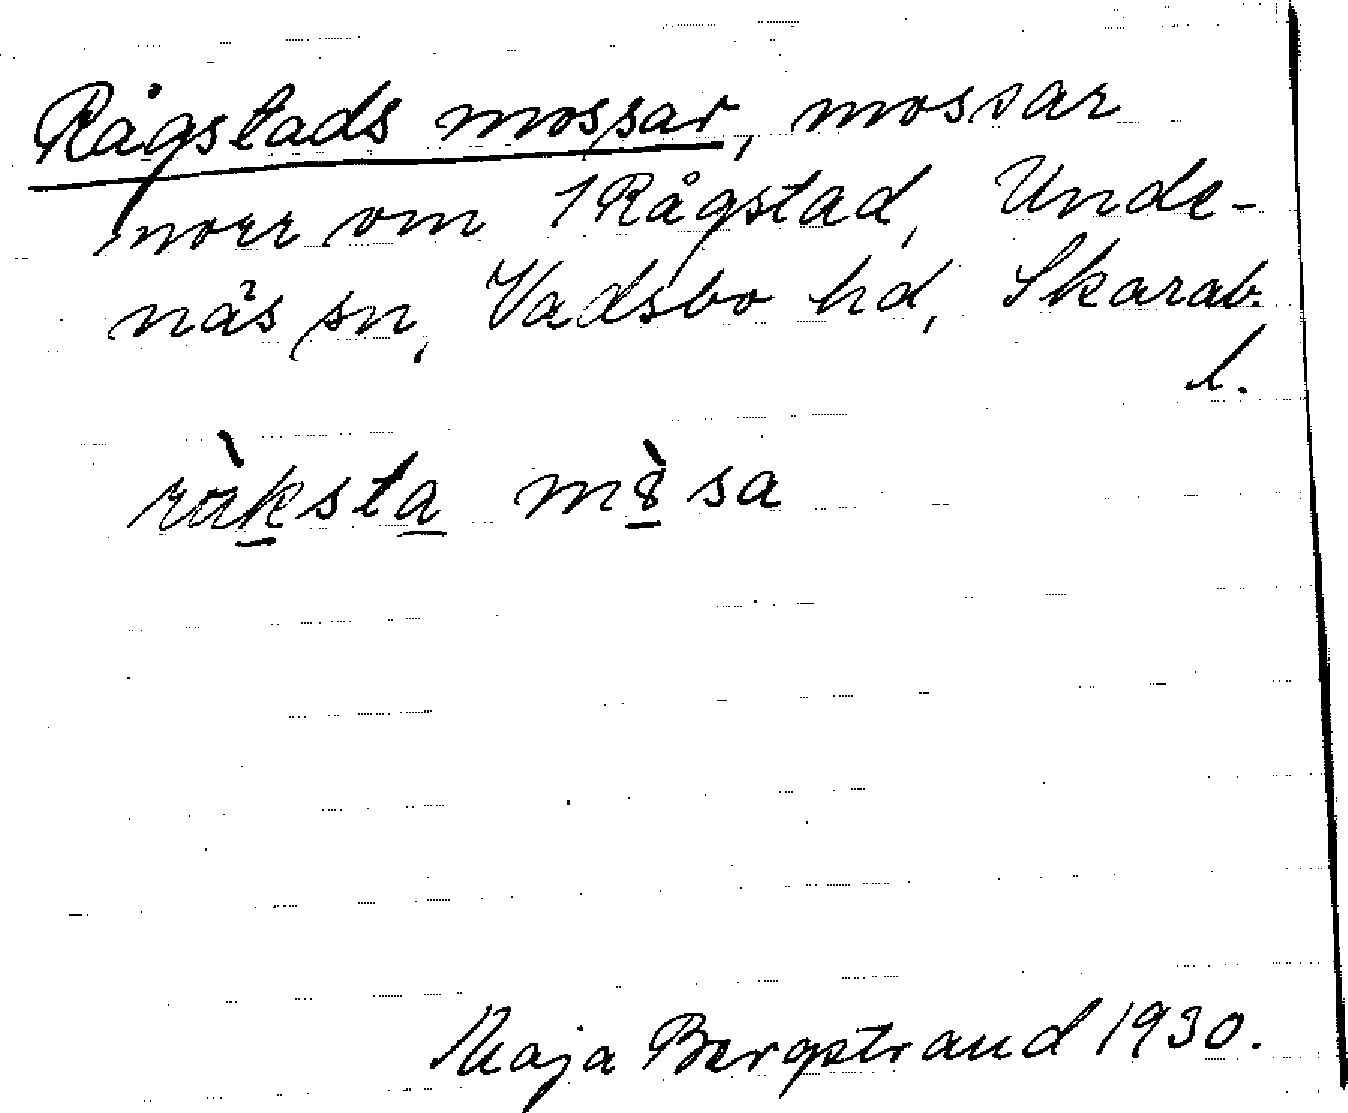 Rågstads mossar, mossar
norr om 1 Rågstad, Unde-
näs sn, Vadsbo hd, Skarab.
l.
ràksta m sa
Maja Bergstrand 1930.